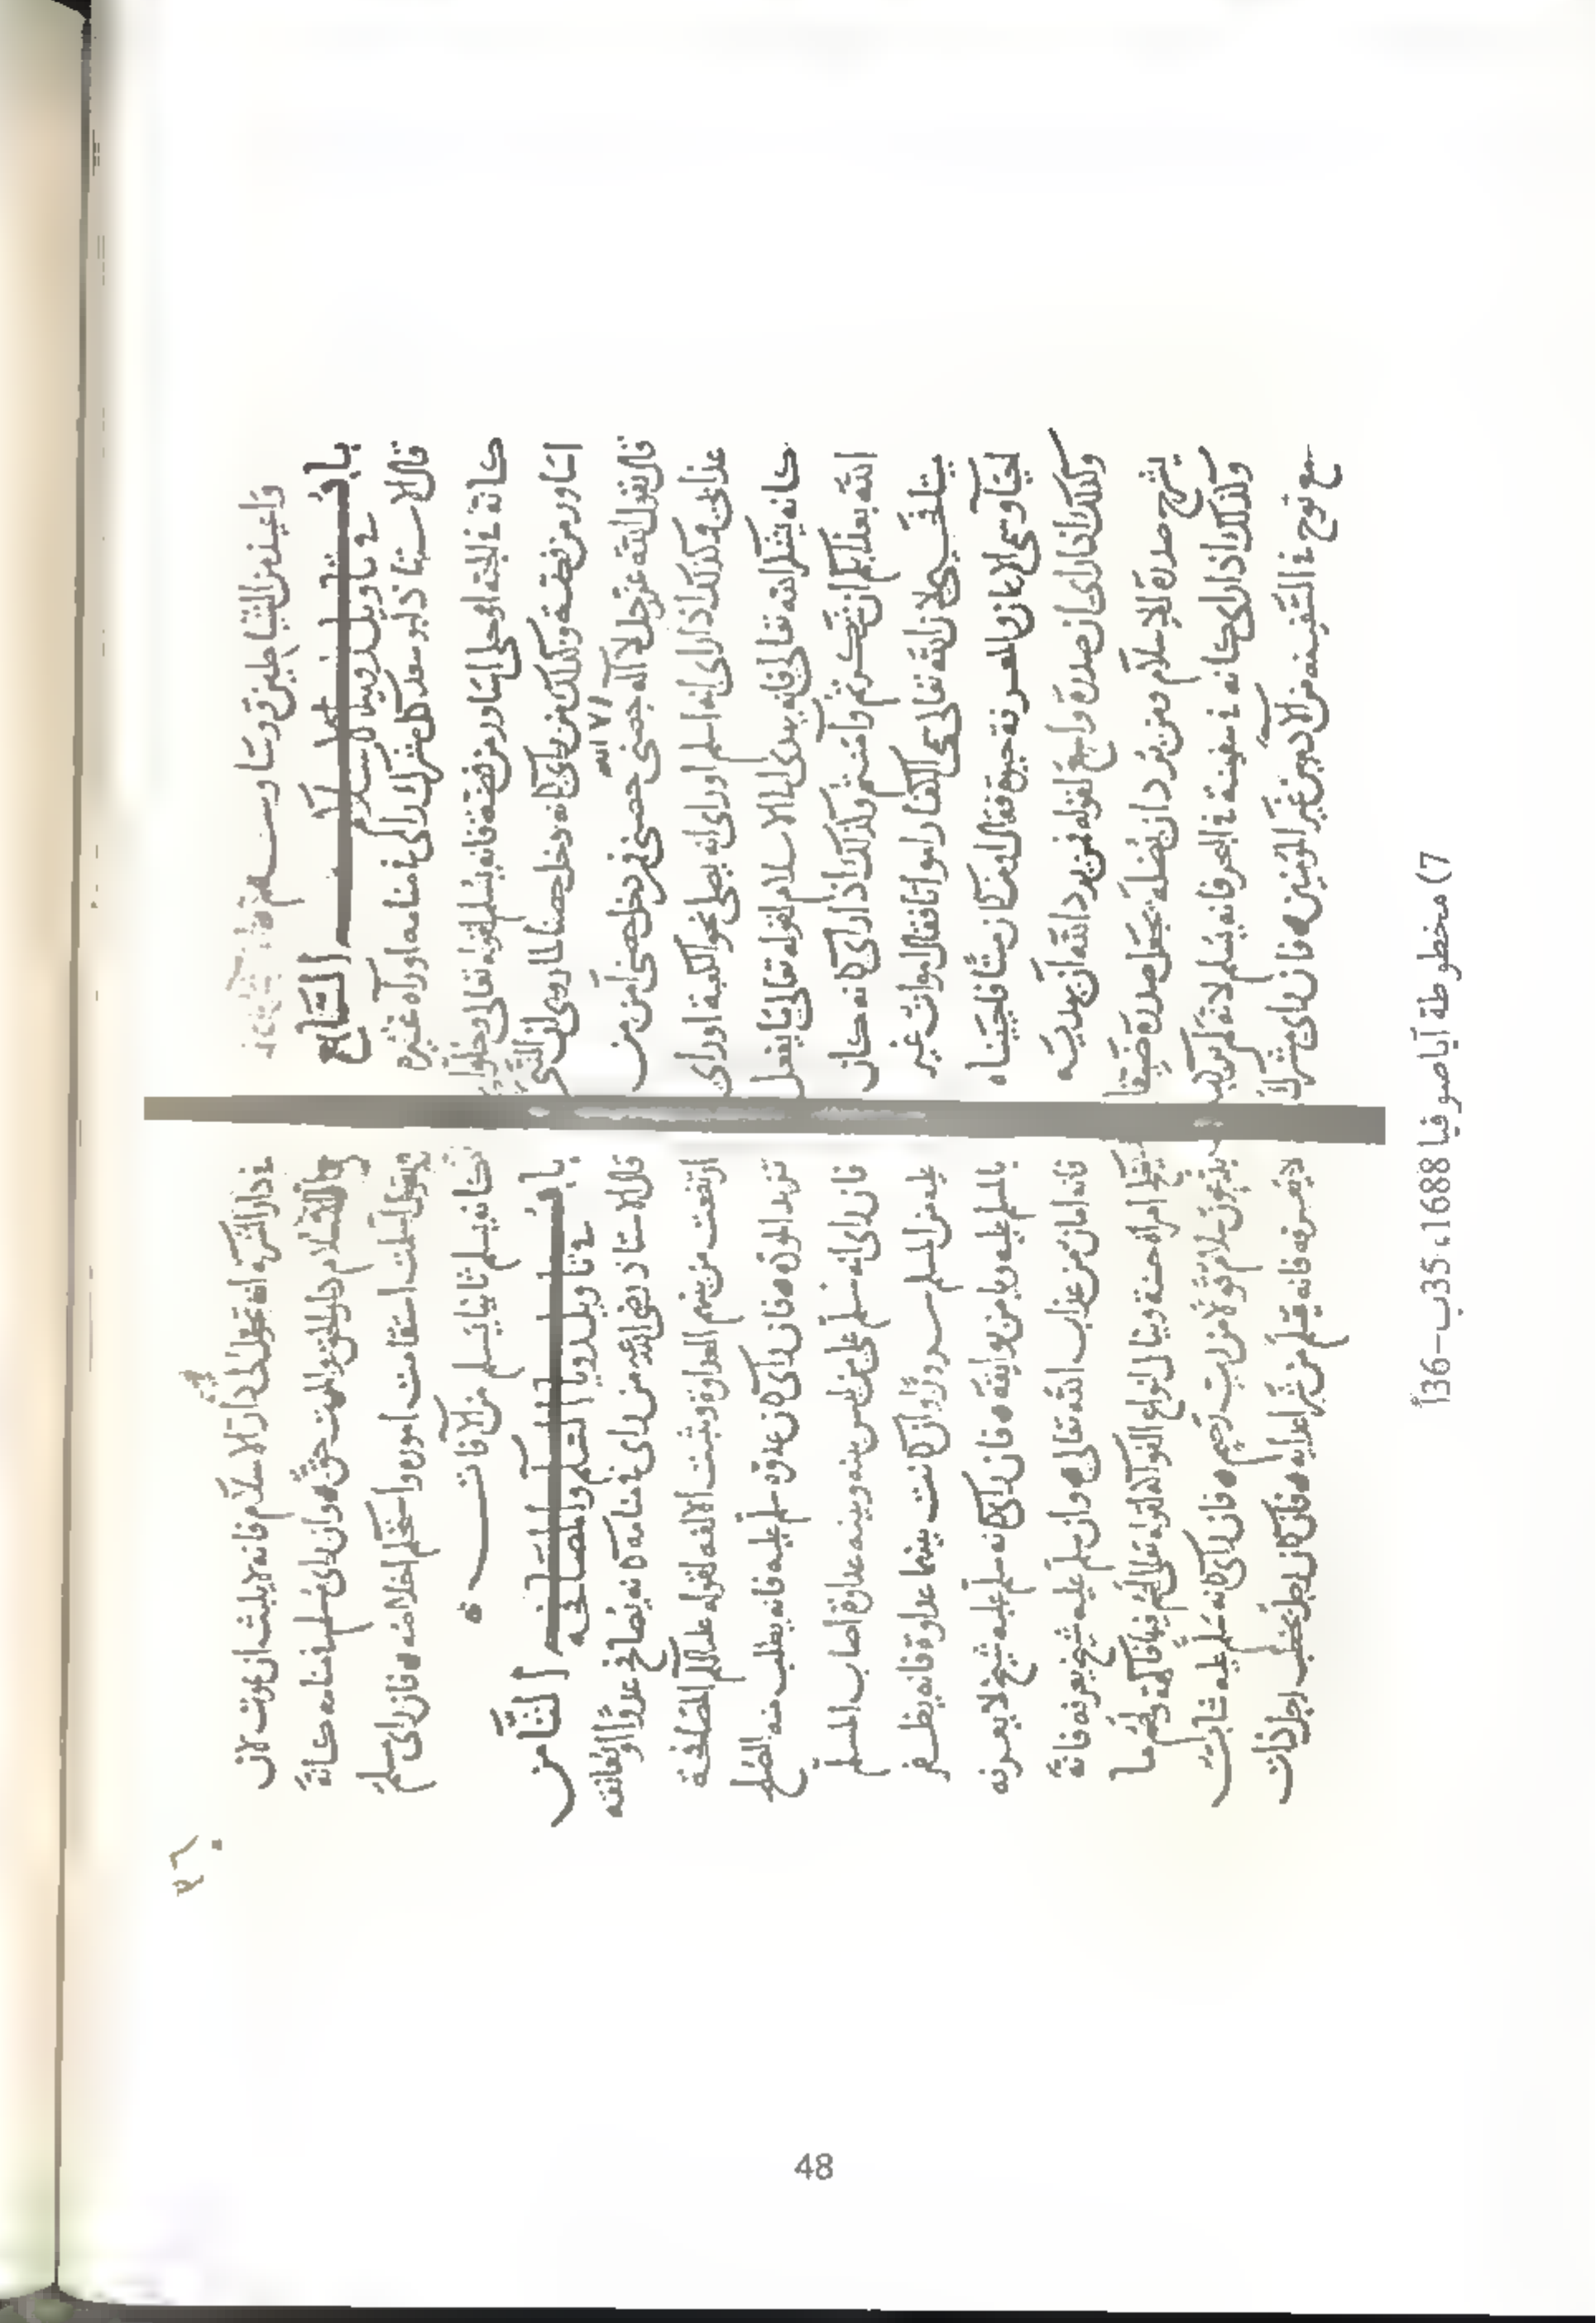 وأعيذه من الشياطين وقر وسا وسهم
باب السابع
في تأويل رؤيا الإسلام
قال الاستاذ ابو سعد كل مشرك رأى في منامه او رآه غيره
كانه في الجنة او حلى اساور من فضة فانه يسلم لقوله تعالى وحلوا
اساور من فضة وكذلك من رأى كانه دخل حصنا لما روى ان النبي
قال يقول الله عز وجل لا اله الا الله حصنى فمن دخل حصنى أمن من
عذابى وكذلك اذا رأى انه اسلم او رأى انه يصلى نحو الكعبة او رأى
كانه يشكر الله تعالى فانه يهدى الى الاسلام لقوله تعالى ما يفعل
الله بعذابكم ان شكرتم وآمنتم وكذلك اذا رأى كانه كان
ميتا فحيى لان الله تعالى سمى الكفار امواتا فقال اموات غير
احيا وسمى الايمان والمعرفة حيوة فقال اومن كان ميتا فاحييناه
وكذلك اذا رأى ان صدره واسع لقوله فمن يرد الله ان يهديه
يشرح صدره للإسلام ومن يرد ان يضله يجعل صدره ضيقا
وكذلك اذا رأى كانه في سفينة في البحر فانه يسلم لانه لم يركب
مع نوح في السفينه من الآدميين غير المؤمنين فان رأى مشرك
في دار الشرك انه تحول الى دار الاسلام فانه لا يلبث ان يموت لان
دار الاسلام دار الحق والموت حق وان رأى مسلم في منامه كانه
يقول اسلمت استقامت اموره واستحكم اخلاصه فان رأى مسلم
كانه يسلم ثانيا يسلم من الآفات
باب الثامن
في تأويل رويا السلم والمصافحه
قال الاستاذ رضي الله عنه من رأى في منامه كانه يصافح عدوا او يعانقه
ارتفعت من بينهم العداوة وثبتت الالفه لقوله عليه السلم المصافحة
تزيد المودة فان رأى كان عدوه سلم عليه فانه يطلب منه الصلح
فان رأى انه سلم على من ليس بينه وبينه عداوة اصاب المسلم
عليه من المسلم سرورا وان كانت بينهما عداوة فانه يظفر
بالمسلم عليه ويامن بوايقه فان رأى كانه سلم عليه شيخ لا يعرفه
فانه امان من عذاب الله تعالى وان سلم عليه شيخ يعرفه فانه
ينكح امراة حسنة وينال انواع الفواكه لقوله تعالى لهم فيها فاكهة ولهم ما
يدعون سلام قولا من رب رحيم فان رأى كانه سلم عليه شاب
لا يعرفه فانه يسلم من شر اعدايه فان كان رجل يخطب
7) مخطوطة آياصوفيا 1688، 35ب–36أ
48